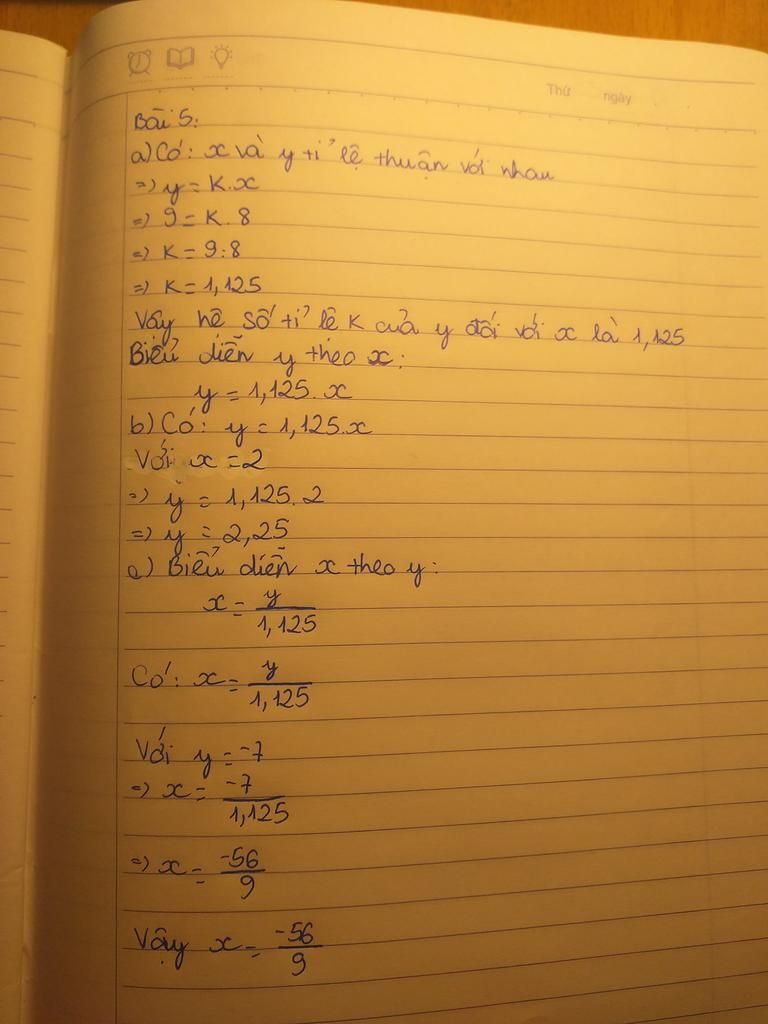 Thứ ngày
Bài 5:
a) Có: x và y tỉ lệ thuận với nhau
=> y = K.x
=> 9 = K.8
=> K = 9:8
=> K = 1,125
Vậy hệ số tỉ lệ K của y đối với x là 1,125
Biểu diễn y theo x:
y = 1,125.x
b) Có: y = 1,125.x
Với x = 2
=> y = 1,125.2
=> y = 2,25
c) Biểu diễn x theo y:
x = y/1,125
Có: x = y/1,125
Với y = -7
=> x = -7/1,125
=> x = -56/9
Vậy x = -56/9